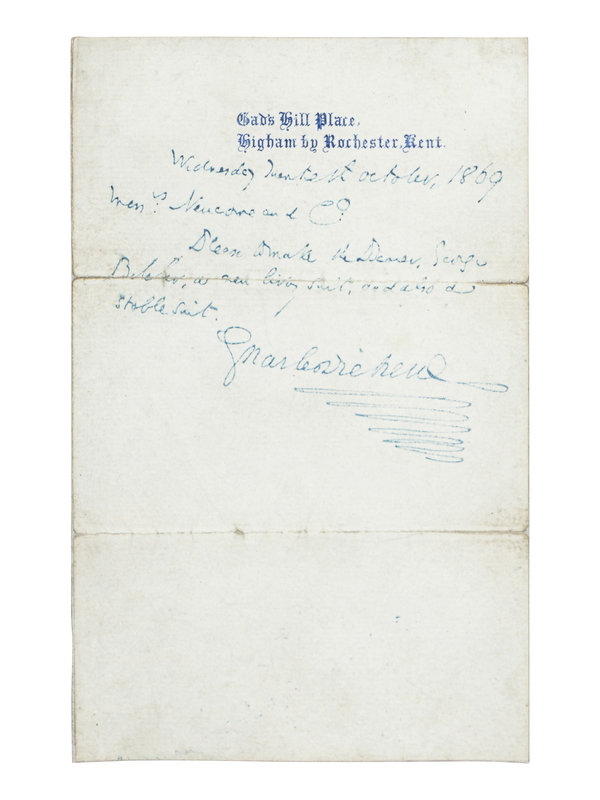 Gad's Hill Place,
Higham by Rochester, Kent.
Wednesday October, 1869
Mess.rs Newcome and Co.
Please to make the bearer, George
a new livery suit, and also a
stable suit.
Charles Dickens